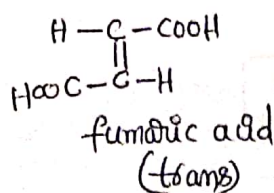 H – C – COOH
||
HOOC – C – H
fumaric acid
(trans)